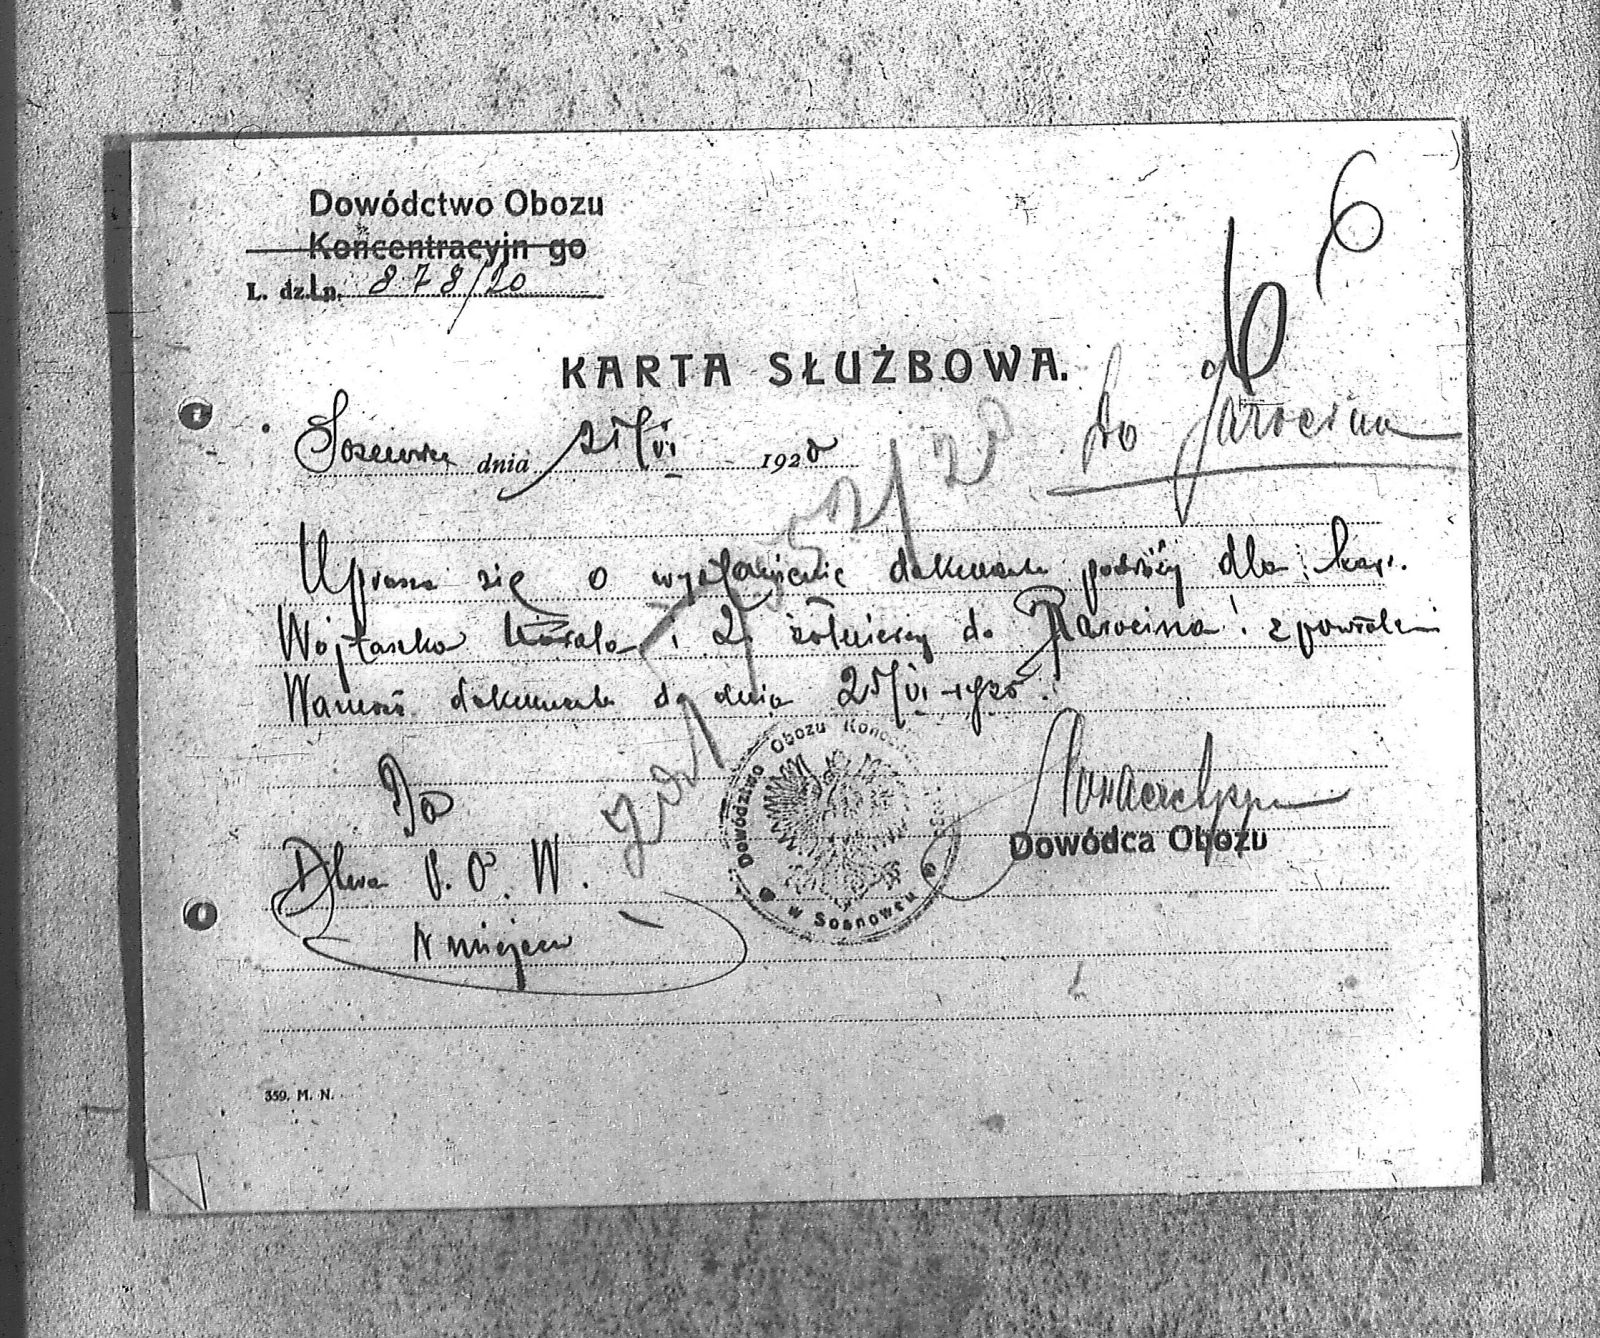 6
Dowództwo Obozu
Koncentracyjn go
L. dz. Lp. 878/20
6
KARTA SŁUŻBOWA.
do Jarocina
dnia 21/VI 1920
Uprasza się o wystawienie dokumentu podróży dla kap.
Wojtaszka Karola i 2 żołnierzy do Jarocina z powrotem
Ważność dokumentu do dnia 25/VI-1920.
Do
Dtwa P. O. W.
W miejscu
Dowództwo Obozu Koncen
w Sosnowcu
Dowódca Obozu
359. M. N.